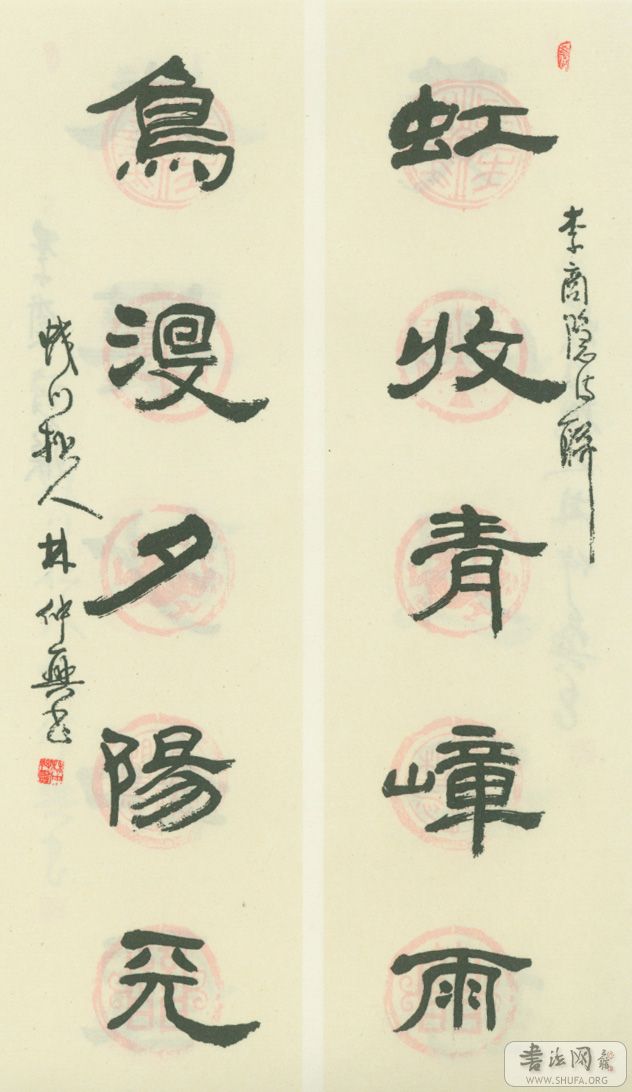 李商隐诗聯
虹收青嶂雨
鳥沒夕陽天
人林仲興书
書法网
WWW.SHUFA.ORG